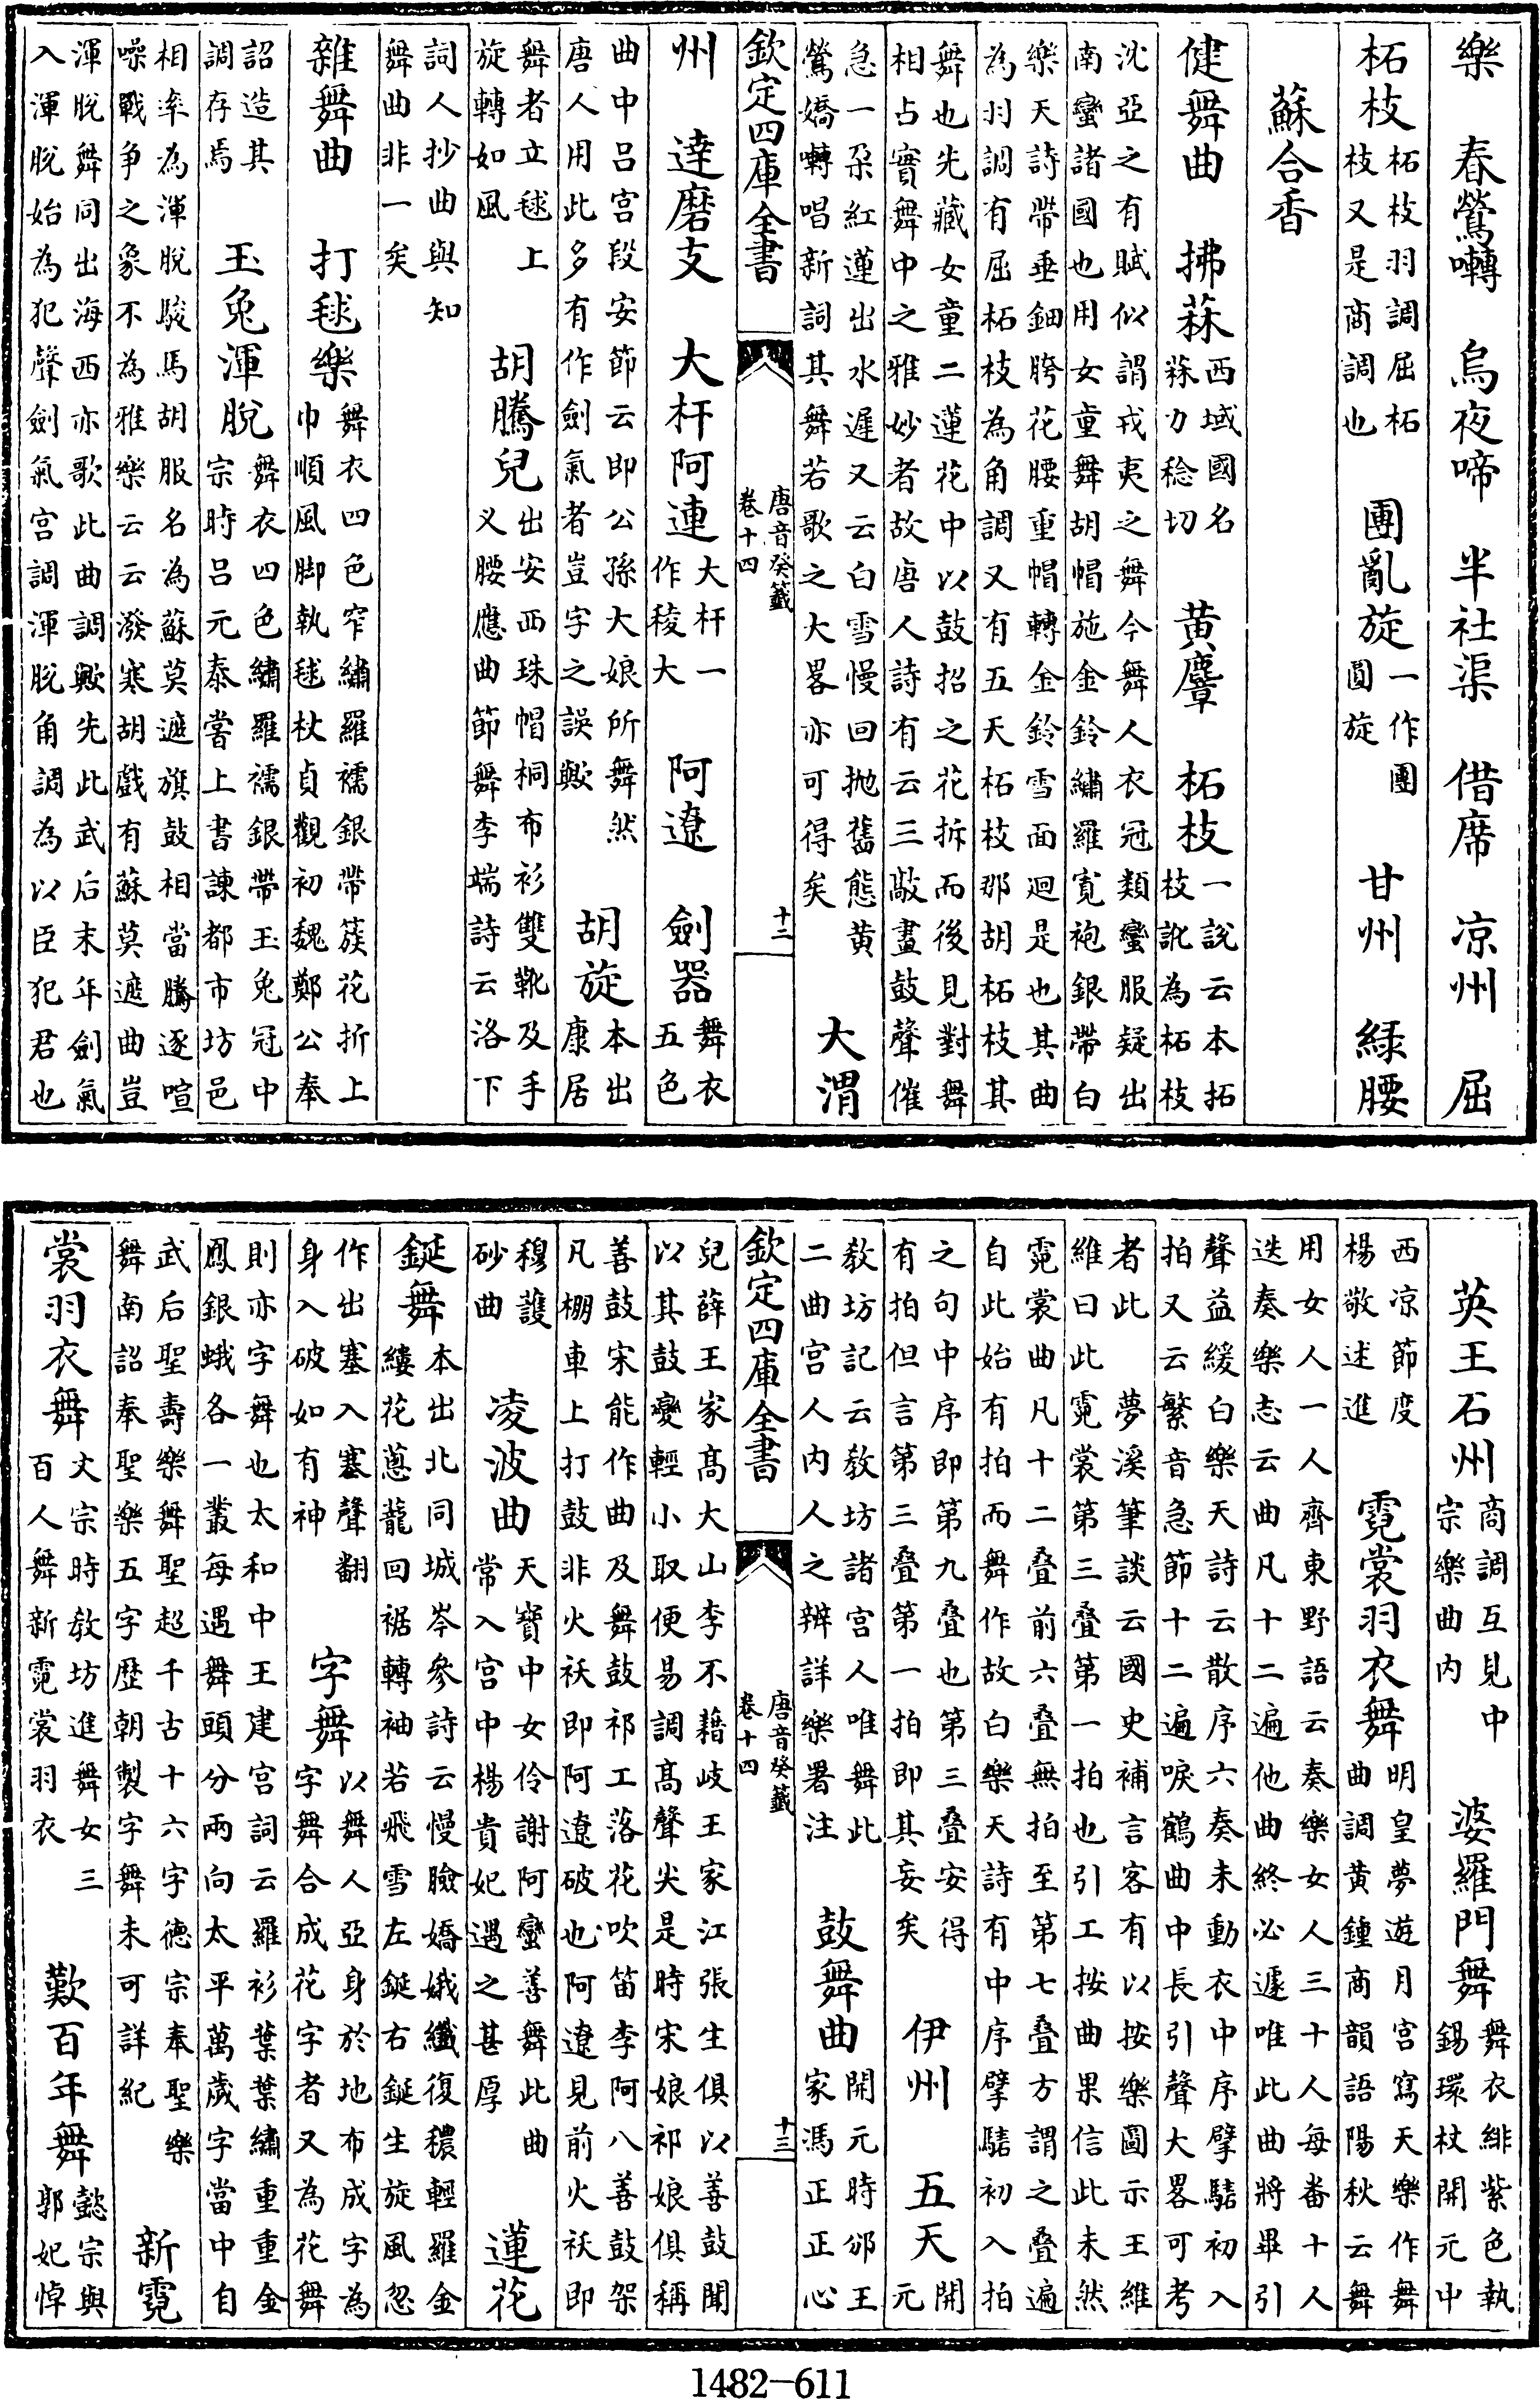 樂 春鶯囀 烏夜啼 半社渠 借席 凉州 屈
柘枝 柘枝羽調屈柘枝又是商調也 團亂旋 一作團圓旋 甘州 緑腰
蘇合香
健舞曲 拂菻 西域國名菻力稔切 黄麞 柘枝 一說云本拓枝訛為柘枝
沈亞之有賦似謂戎夷之舞今舞人衣冠類蠻服疑出
南蠻諸國也用女童舞胡帽施金鈴繡羅寛袍銀帶白
樂天詩帶垂鈿胯花腰重帽轉金鈴雪面迴是也其曲
為羽調有屈柘枝為角調又有五天柘枝那胡柘枝其
舞也先藏女童二蓮花中以鼓招之花拆而後見對舞
相占實舞中之雅妙者故唐人詩有云三敲畫鼓聲催
急一朵紅蓮出水遲又云白雪慢回抛舊態黄
鶯嬌囀唱新詞其舞若歌之大畧亦可得矣 大渭
欽定四庫全書 唐音癸籤 卷十四 十二
州 達磨支 大杆阿連 大杆一作稜大 阿遼 劍器 舞衣五色
曲中呂宫段安節云即公孫大娘所舞然
唐人用此多有作劍氣者豈字之誤歟 胡旋 本出康居
舞者立毬上
旋轉如風 胡騰兒 出安西珠帽桐布衫雙靴及手
乂腰應曲節舞李端詩云洛下
詞人抄曲與知
舞曲非一矣
雜舞曲 打毬樂 舞衣四色窄繡羅襦銀帶簇花折上
巾順風脚執毬杖貞觀初魏鄭公奉
詔造其
調存焉 玉兔渾脫 舞衣四色繡羅襦銀帶玉兔冠中
宗時呂元泰嘗上書諫都市坊邑
相率為渾脫駿馬胡服名為蘇莫遮旗鼓相當騰逐喧
噪戰爭之象不為雅樂云云潑寒胡戲有蘇莫遮曲豈
渾脫舞同出海西亦歌此曲調歟先此武后末年劍氣
入渾脫始為犯聲劍氣宫調渾脫角調為以臣犯君也
英王石州 商調互見中宗樂曲内 婆羅門舞 舞衣緋紫色執
錫環杖開元中
西凉節度
楊敬述進 霓裳羽衣舞 明皇夢遊月宫寫天樂作舞
曲調黄鍾商韻語陽秋云舞
用女人一人齊東野語云奏樂女人三十人每畨十人
迭奏樂志云曲凡十二遍他曲終必遽唯此曲將畢引
聲益緩白樂天詩云散序六奏未動衣中序擘騞初入
拍又云繁音急節十二遍唳鶴曲中長引聲大畧可考
者此 夢溪筆談云國史補言客有以按樂圖示王維
維曰此霓裳第三疊第一拍也引工按曲果信此未然
霓裳曲凡十二疊前六疊無拍至第七疊方謂之疊遍
自此始有拍而舞作故白樂天詩有中序擘騞初入拍
之句中序即第九疊也第三疊安得
有拍但言第三疊第一拍即其妄矣 伊州 五天 開元
教坊記云教坊諸宫人唯舞此
二曲宫人内人之辨詳樂署注 鼓舞曲 開元時邠王
家馮正正心
欽定四庫全書 唐音癸籤 卷十四 十三
兒薛王家高大山李不藉岐王家江張生俱以善鼓聞
以其鼓變輕小取便易調高聲尖是時宋娘祁娘俱稱
善鼓宋能作曲及舞鼓祁工落花吹笛李阿八善鼓架
凡棚車上打鼓非火祅即阿遼破也阿遼見前火祅即
穆䕶
砂曲 凌波曲 天寶中女伶謝阿蠻善舞此曲
常入宫中楊貴妃遇之甚厚 蓮花
鋋舞 本出北同城岑參詩云慢臉嬌娥纖復穠輕羅金
縷花蔥蘢回裾轉袖若飛雪左鋋右鋋生旋風忽
作出塞入塞聲翻
身入破如有神 字舞 以舞人亞身於地布成字為
字舞合成花字者又為花舞
則亦字舞也太和中王建宫詞云羅衫葉葉繡重重金
鳳銀蛾各一叢每遇舞頭分兩向太平萬歲字當中自
武后聖壽樂舞聖超千古十六字德宗奉聖樂
舞南詔奉聖樂五字歴朝製字舞未可詳紀 新霓
裳羽衣舞 文宗時教坊進舞女三
百人舞新霓裳羽衣 歎百年舞 懿宗與
郭妃悼
1482—611